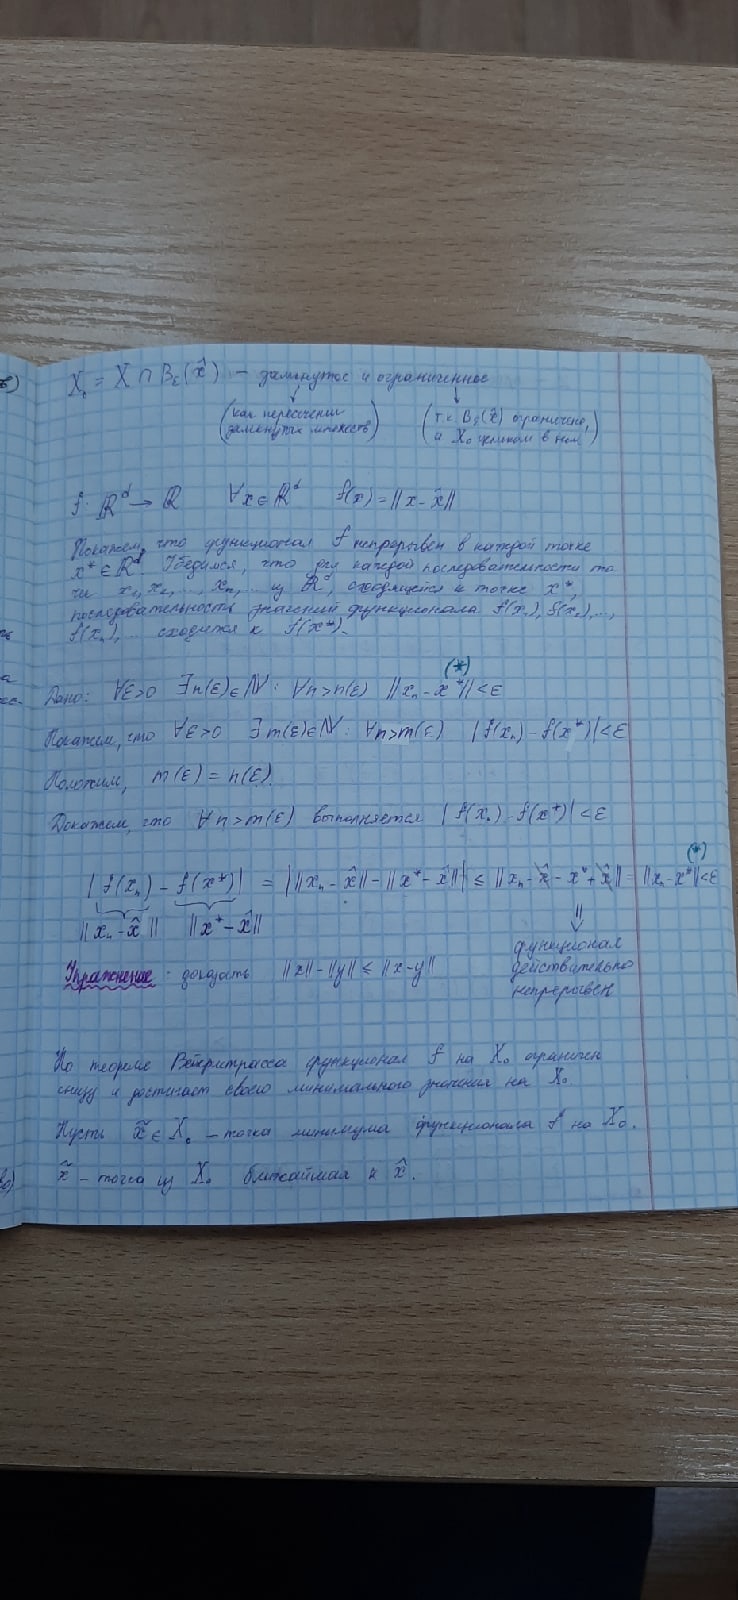 X₀ = X ∩ B_ε(x̂) – замкнутое и ограниченное
(как пересечение замкнутых множеств) (т.к. B_ε(x̂) ограничено, и X₀ целиком в нём)
f: ℝᵈ → ℝ ∀x∈ℝᵈ f(x) = ||x - x̂||
Покажем, что функционал f непрерывен в каждой точке
x* ∈ ℝᵈ. Убедимся, что для каждой последовательности то-
чек x₁, x₂, ..., xₙ, ... из ℝᵈ, сходящейся к точке x*,
последовательность значений функционала f(x₁), f(x₂), ...,
f(xₙ), ... сходится к f(x*).
(*)
Дано: ∀ε>0 ∃n(ε)∈ℕ: ∀n>n(ε) ||xₙ - x*|| < ε
Покажем, что ∀ε>0 ∃m(ε)∈ℕ: ∀n>m(ε) |f(xₙ) - f(x*)| < ε
Положим, m(ε) = n(ε).
Докажем, что ∀n>m(ε) выполняется |f(xₙ) - f(x*)| < ε
(*)
|f(xₙ) - f(x*)| = | ||xₙ - x̂|| - ||x* - x̂|| | ≤ ||xₙ - x̂ - x* + x̂|| = ||xₙ - x*|| < ε
||xₙ - x̂|| ||x* - x̂|| ⇓
функционал
Упражнение: доказать ||x|| - ||y|| ≤ ||x-y|| действительно
непрерывен
По теореме Вейерштрасса функционал f на X₀ ограничен
снизу и достигает своего минимального значения на X₀
Пусть x̃ ∈ X₀ – точка минимума функционала f на X₀.
x̃ – точка из X₀ ближайшая к x̂.